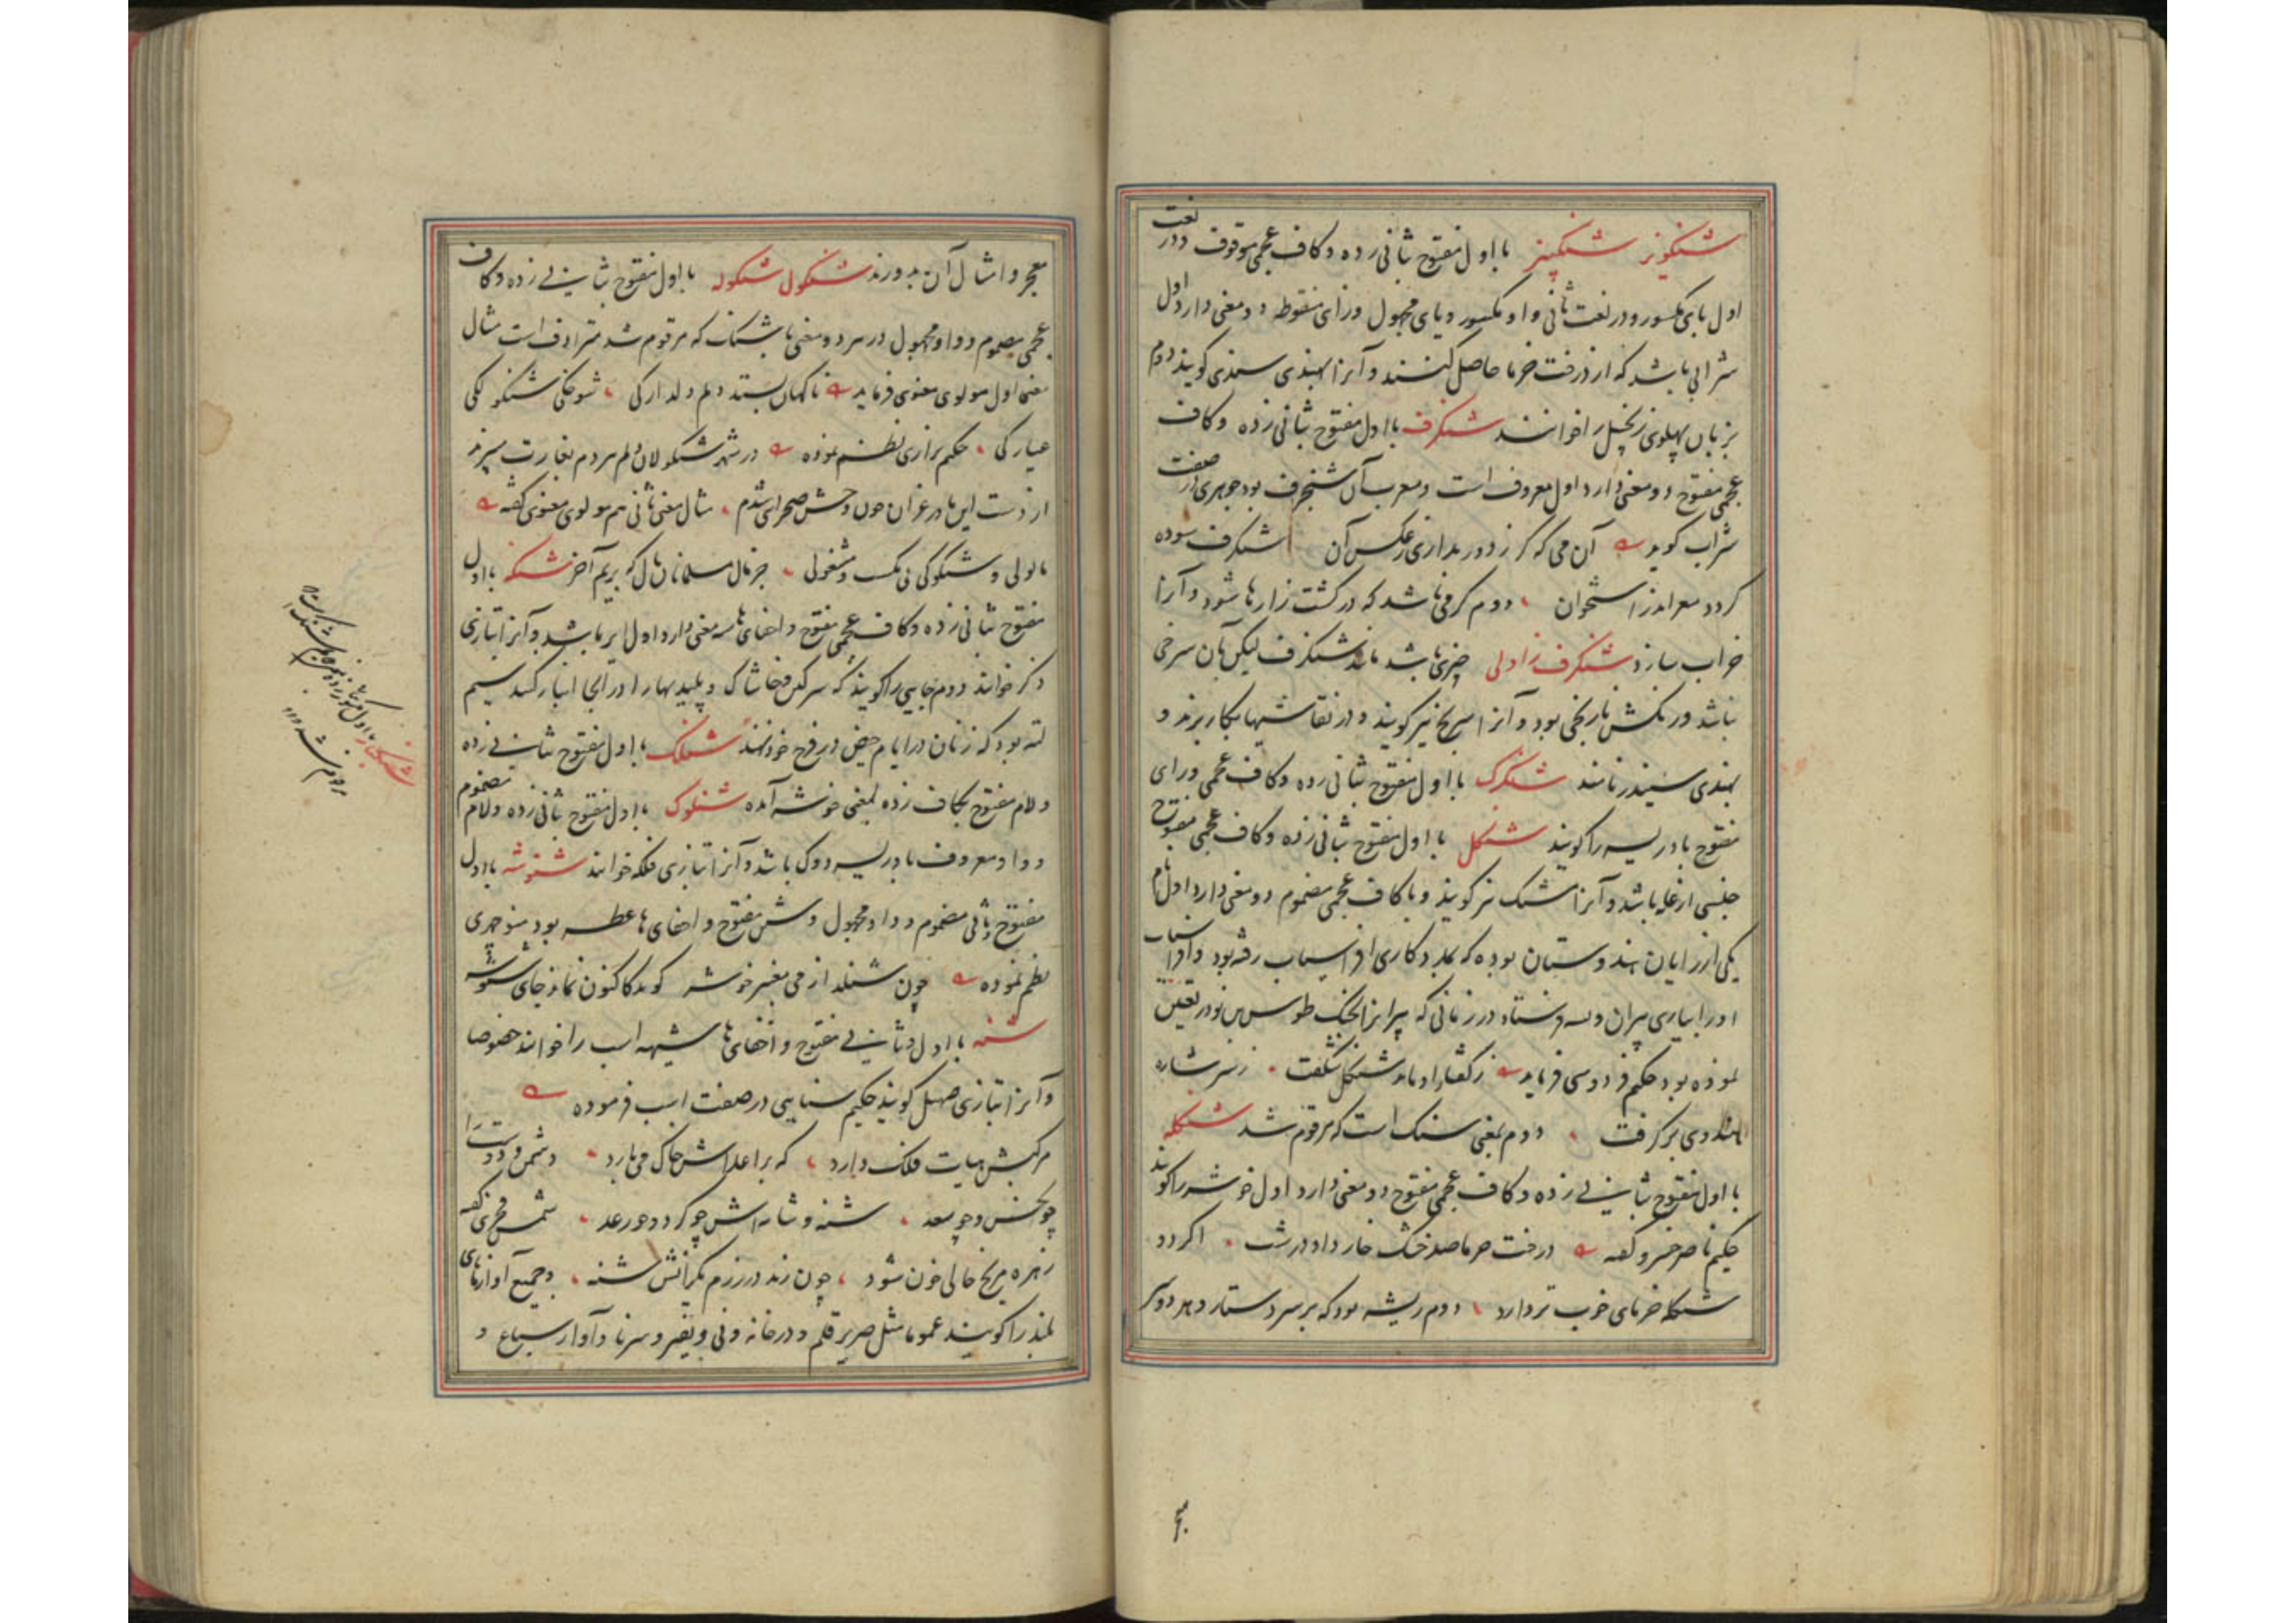 شنکویز شنکبیز با اول مفتوح بثانی زده و کاف عجمی موقوف و در لغت
اول بای مکسور و در لغت ثانی واو مکسور و یای مجهول و زای منقوطه دو معنی دارد اول
شرابی باشد که از درخت خرما حاصل کنند و آنرا بهندی سندی کویند دوم
بزبان پهلوی زنجبیل را خوانند شنکرف با اول مفتوح بثانی زده و کاف
عجمی مفتوح دو معنی دارد اول معروف است و معرب آن شنجرف بود جوهری در صفت
شراب کوید آن می که کر ز دور بداری ز عکس آن شنکرف سوده
کردد مغز اندر استخوان دوم کرمی باشد که در کشت زارها شود و آنرا
خراب سازد شنکرف زاولی چیزی باشد مانند شنکرف لیکن بان سرخی
نباشد و رنکش نارنجی بود و آنرا سرنج نیز کویند و در نقاشیها بکار برند و
بهندی سیندر نامند شنکرک با اول مفتوح بثانی زده و کاف عجمی و رای
مفتوح بادریسه را کویند شنکل با اول مفتوح بثانی زده و کاف عجمی مفتوح
جنسی از غله باشد و آنرا شنک نیز کویند و با کاف عجمی مضموم دو معنی دارد اول نام
یکی از رایان هندوستان بوده که بمددکاری افراسیاب رفته بود و افراسیاب
او را بیاری پیران ویسه فرستاد در زمانی که پیران بجنک طوس بن نوذر تعین
نموده بود حکیم فردوسی فرماید ز کفتار او ماند شنکل شکفت ز سر شاره
هندوی بر کرفت دوم بمعنی شنک است که مرقوم شد شنکله
با اول مفتوح بثانی زده و کاف عجمی مفتوح دو معنی دارد اول خوشه را کویند
حکیم ناصر خسرو کفته درخت خرما صد خشک خار دارد زشت اکر دو
شنکله خرمای خوب تر دارد دوم ریشه بود که بر سر دستار و هر دو سر
معجر و امثال آن بدوزند شنکول شنکوله با اول مفتوح بثانی زده و کاف
عجمی مضموم و واو مجهول در هر دو معنی با شنک که مرقوم شد مترادف است مثال
معنی اول مولوی معنوی فرماید ناکهان بستد دلم دلدارکی شوخکی شنکولکی
عیارکی حکیم نزاری نظم نموده در شهر شنکولان دلم مردم بغارت میبرند
از دست این مادر غران چون وحش صحرایی شدم مثال معنی ثانی هم مولوی معنوی کفته
با لولی و شنکولکی
مفتوح بثانی زده و کاف عجمی مفتوح و اخفای ها سه معنی دارد اول ایر باشد و آنرا بتازی
ذکر خوانند دوم جایی را کویند که سرکین و خاشاک و پلیدیها را در انجا انبار کنند سیم
لته بود که زنان در ایام حیض در فرج خود نهند شنلک با اول مفتوح بثانی زده
و لام مفتوح بکاف زده بمعنی خوشه آمده شنلوک با اول مفتوح بثانی زده و لام مضموم
و واو معروف بادریسه دوک باشد و آنرا بتازی فلکه خوانند شنوشه با اول
مفتوح و ثانی مضموم و واو مجهول و شین مفتوح و اخفای ها عطسه بود منوچهری
نظم نموده چون شنلد از می مغبر خوشه کوید کاکنون نماند جای شنوشه
شنه با اول و ثانی مفتوح و اخفای ها شیهه اسب را خوانند خصوصا
و آنرا بتازی صهیل کویند حکیم سنایی در صفت اسب فرموده
مرکبش هیات فلک دارد که بر اعداش خاک میبارد دشمن و دوست را
چو نحس و چو سعد شنه و شانه‌اش چو کرد و چو رعد شمس فخری کفته
زهره مریخ خالی خون شود چون زند در رزم یکرانش شنه و جمیع آوازهای
بلند را کویند عموما مثل صریر قلم و درخانه و نی و نفیر و سرنا و آواز سباع و
معجر